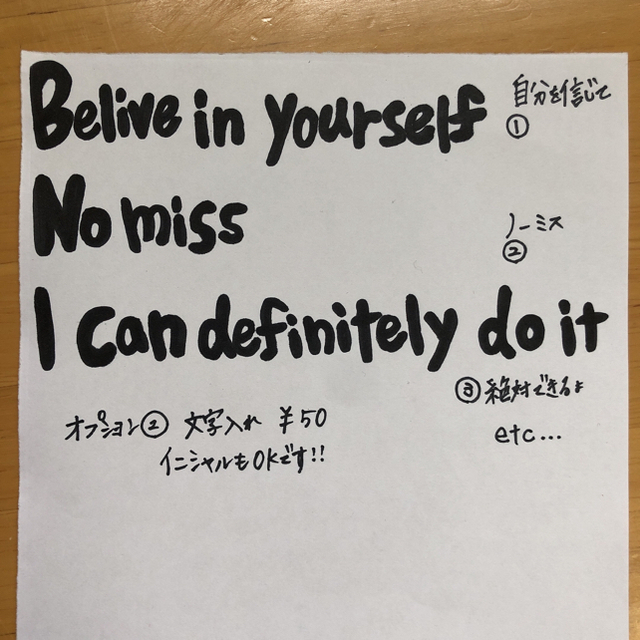 Belive in yourself 自分を信じて
①
No miss ノーミス
②
I can definitely do it
③ 絶対できるよ
オプション② 文字入れ ¥50
etc...
イニシャルもOKです!!